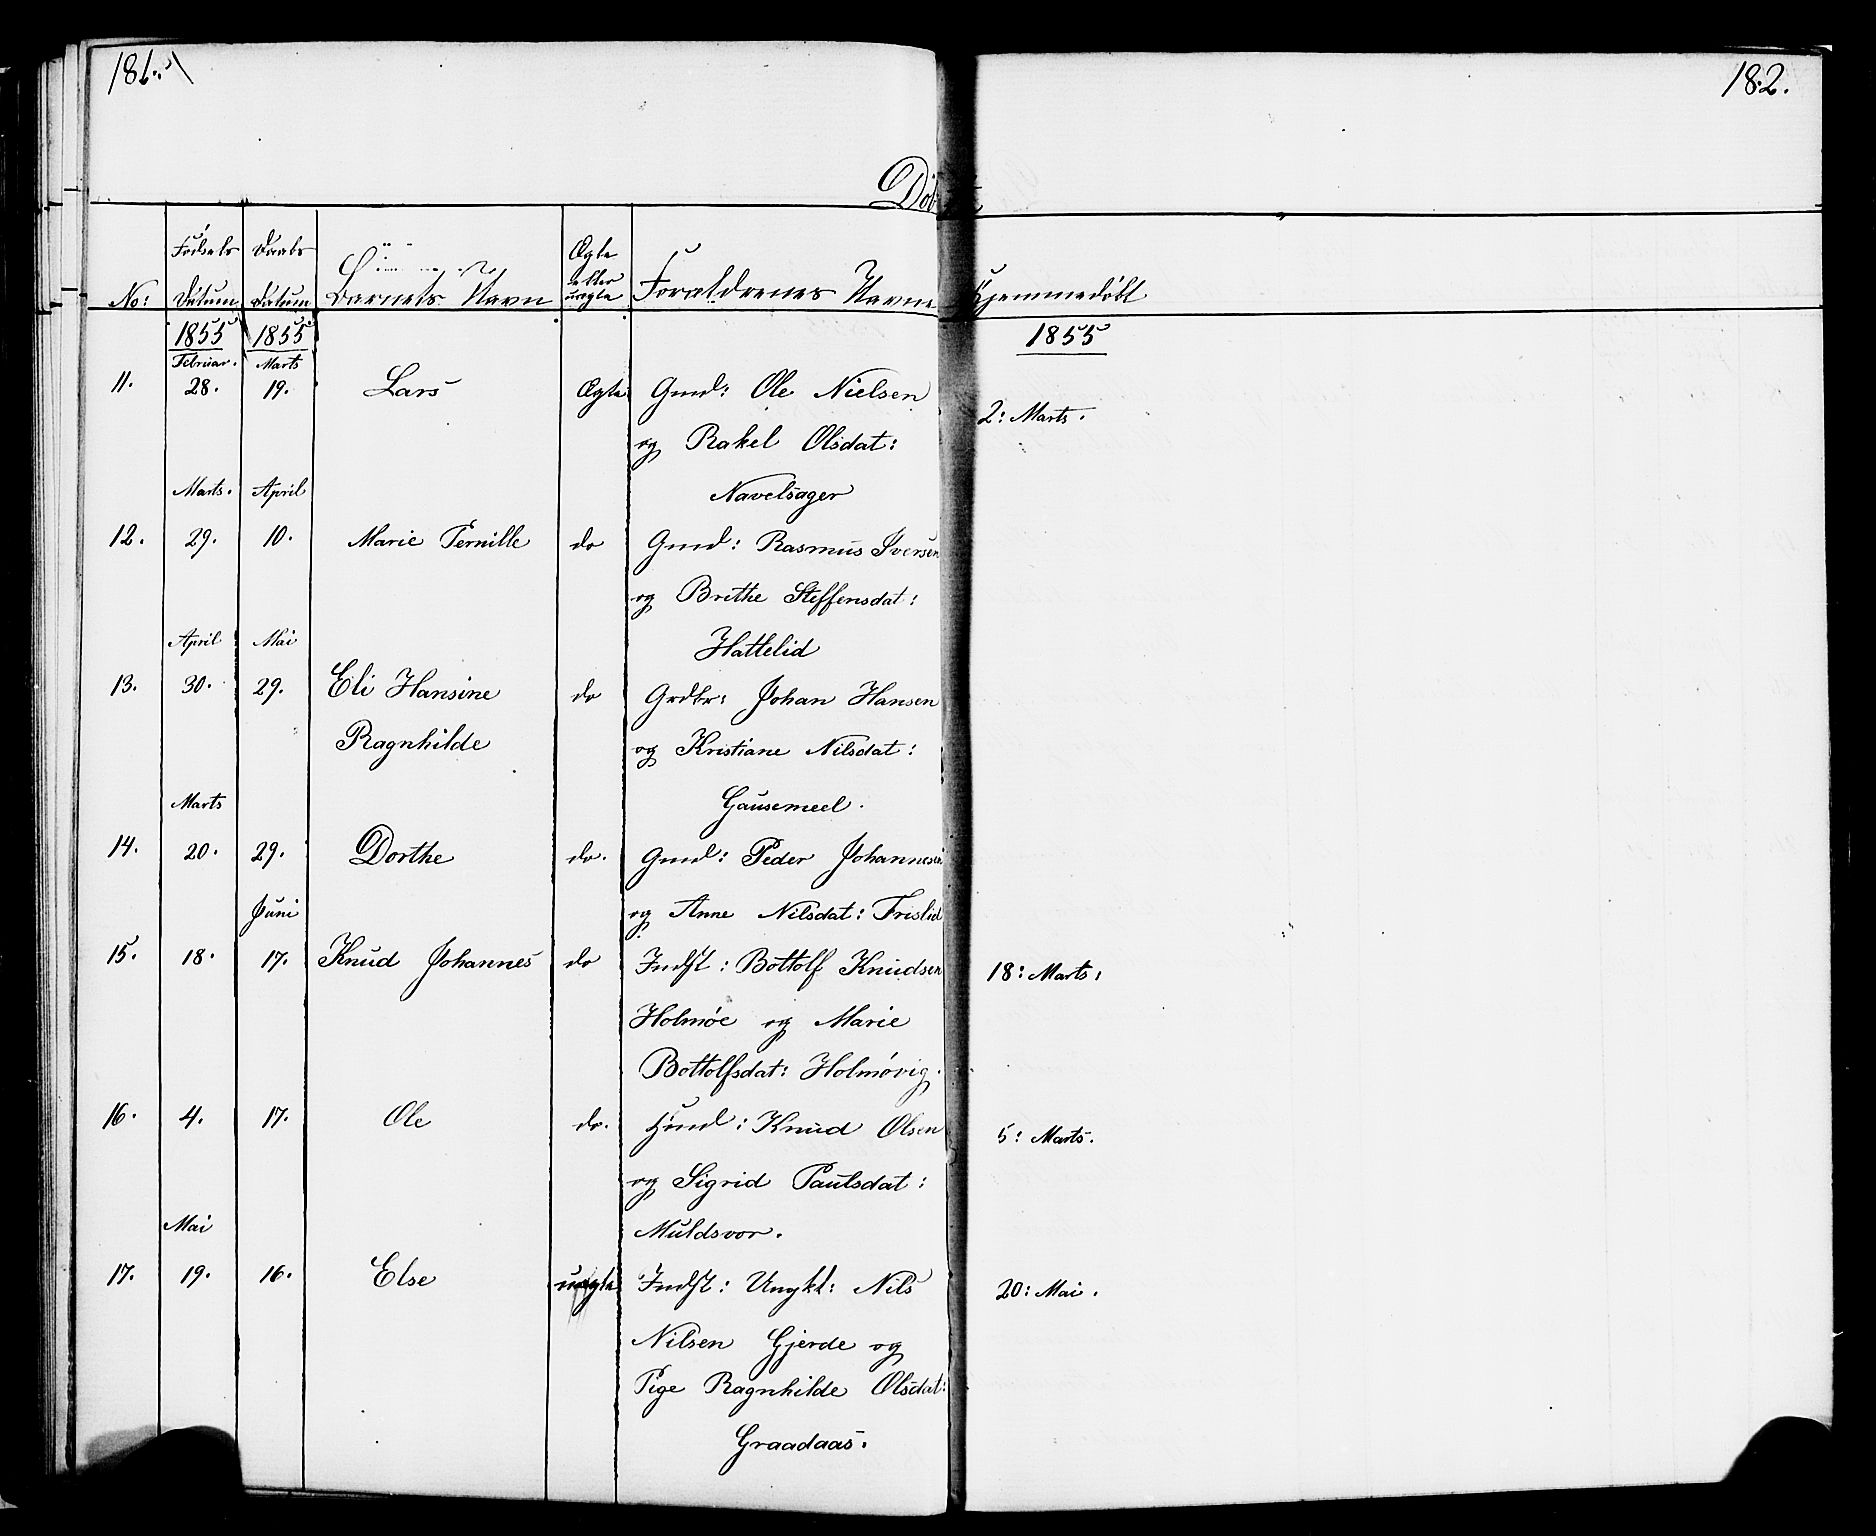 181.
182.
Døbte
No:
Fødsels Datum
Daabs Datum
Barnets Navn
Ægte eller uægte
Forældrenes Navne
Hjemmedøbt
1855 1855 1855
Februar. Marts
11. 28. 19. Lars Ægte Gmd: Ole Nielsen
2: Marts.
og Rakel Olsdat:
Marts. April Navelsager
12. 29. 10. Marie Pernille do Gmd: Rasmus Iversen
og Brithe Steffensdat:
April Mai Hattelid
13. 30. 29. Eli Hansine do Grdbr: Johan Hansen
Ragnhilde og Kristiane Nilsdat:
Marts Gausemeel.
14. 20. 29. Dorthe do. Gmd: Peder Johannesen
Juni og Anne Nilsdat: Frislid
15. 18. 17. Knud Johannes do Indst: Bottolf Knudsen 18: Marts:
Holmøe og Marie
Bottolfsdat: Holmøvig.
16. 4. 17. Ole do. Hmd: Knud Olsen 5: Marts.
og Sigrid Paulsdat:
Mai Muldsvor.
17. 19. 16. Else uægte Indst: Ungkl: Nils 20: Mai.
Nilsen Gjerde og
Pige Ragnhilde Olsdat:
Graadaas.